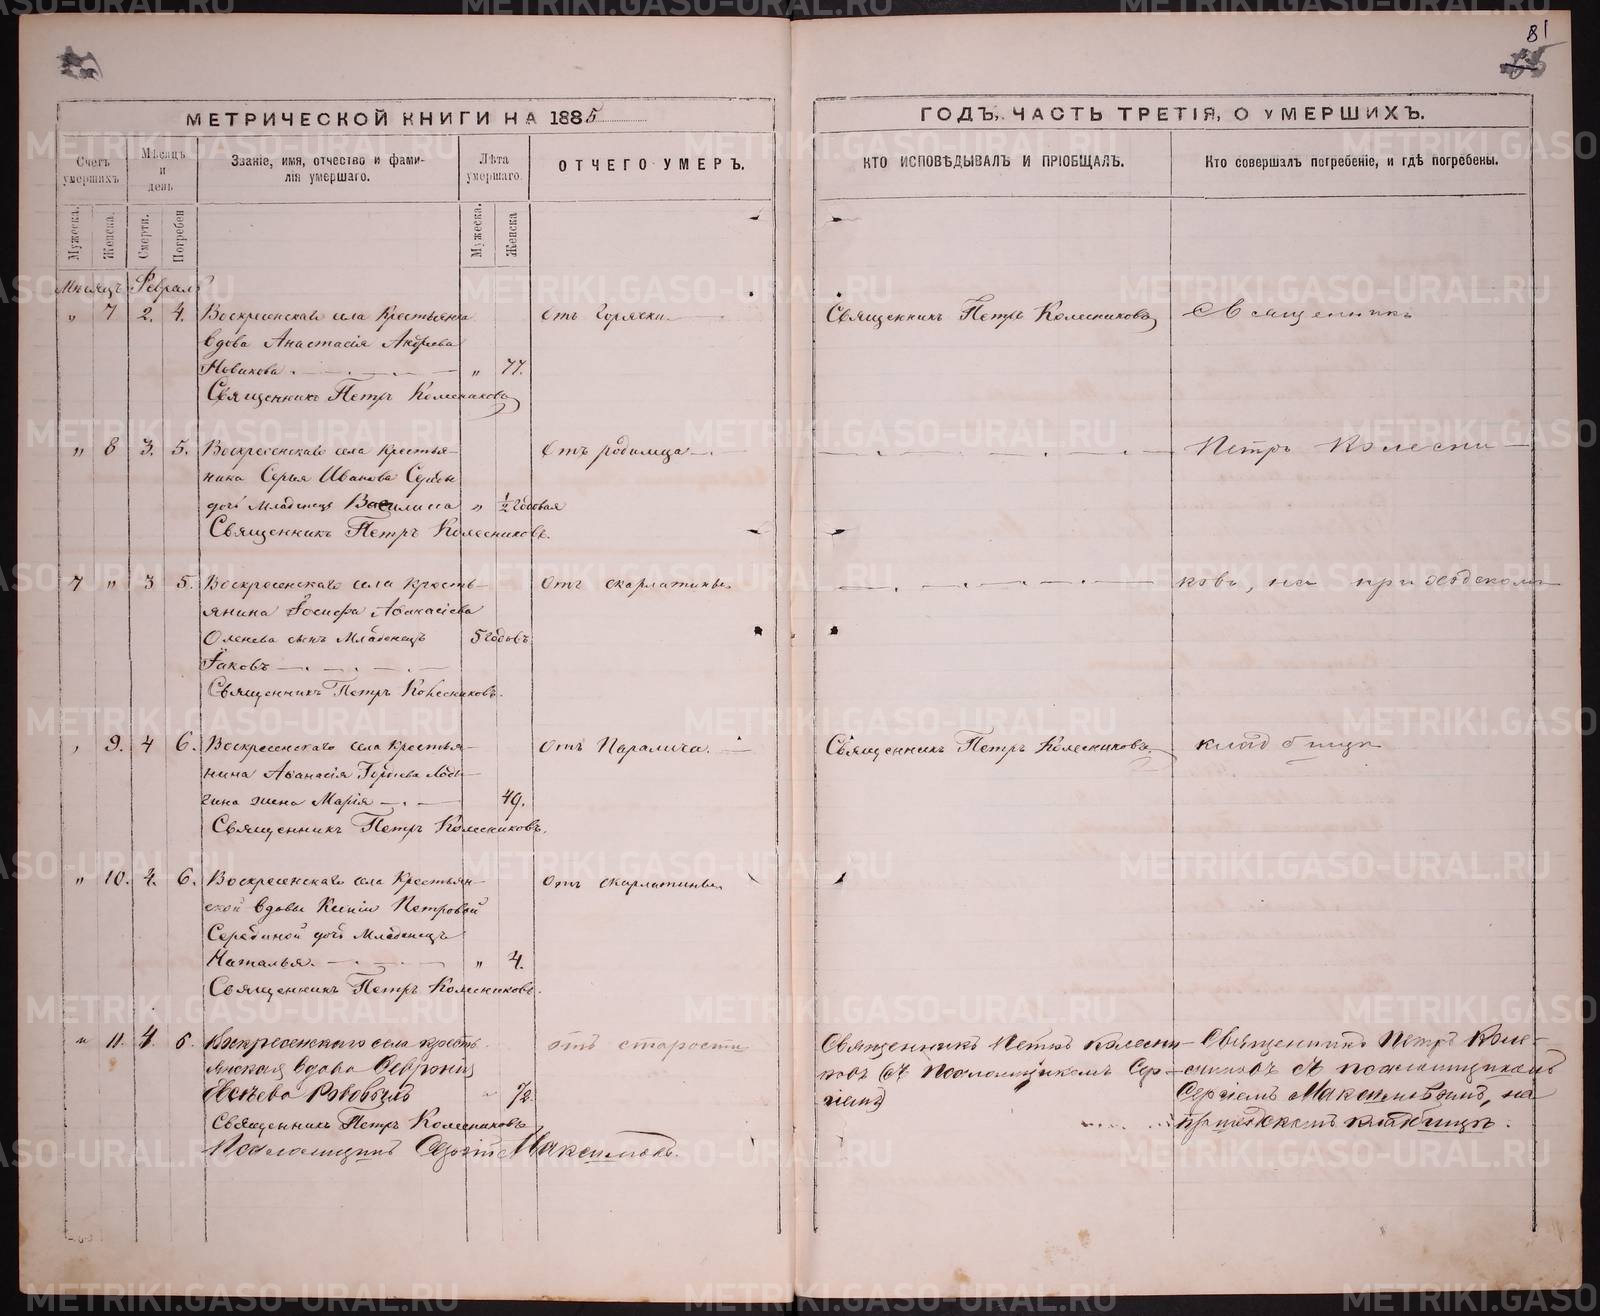 81
МЕТРИЧЕСКОЙ КНИГИ НА 1885
ГОДЪ, ЧАСТЬ ТРЕТІЯ, О УМЕРШИХЪ.
Счетъ умершихъ
Мѣсяцъ и день
Званіе, имя, отчество и фами-
лія умершаго.
Лѣта умершаго.
ОТЧЕГО УМЕРЪ.
КТО ИСПОВѢДЫВАЛЪ И ПРІОБЩАЛЪ.
Кто совершалъ погребеніе, и гдѣ погребены.
Мужеска. Женска. Смерти. Погребен Мужеска. Женска
Мѣсяцъ Февраль
„ 7 2. 4. Воскресенскаго села Крестьянка отъ Горячки Священникъ Петръ Колесниковъ Священникъ
вдова Анастасія Андреева
Новикова „ 77.
Священникъ Петръ Колесниковъ
„ 8 3. 5. Воскресенскаго села Крестья- Отъ родимца Петръ Колесни-
нина Иванова
дочь Младенецъ Василиса „ ½ годовая
Священникъ Петръ Колесниковъ.
7 „ 3 5. Воскресенскаго села Кресть- Отъ скарлатины ковъ, на приходскомъ
янина Іосифа Аѳанасіева
Оленева сынъ Младенецъ 5 годовъ
Іаковъ
Священникъ Петръ Колесниковъ.
9. 4 6. Воскресенскаго села Крестья- Отъ Паралича. Священникъ Петръ Колесниковъ кладбищѣ
нина Аѳанасія
гина жена Марія 49.
Священникъ Петръ Колесниковъ.
„ 10. 4. 6. Воскресенскаго села Крестьян- отъ скарлатины
ской вдовы Ксеніи Петровой
дочь Младенецъ
Наталья. „ 4.
Священникъ Петръ Колесниковъ.
„ 11. 4. 6. Воскресенскаго села кресть- отъ старости Священникъ Петръ Колесни- Священникъ Петръ Коле-
янская вдова Февронія ковъ съ Псаломщикомъ Сер- сниковъ съ псаломщикомъ
72. гіемъ Сергіемъ Максимовымъ, на
Священникъ Петръ Колесниковъ приходскомъ кладбищѣ.
Псаломщикъ Сергій Максимовъ.
METRIKI.GASO-URAL.RU